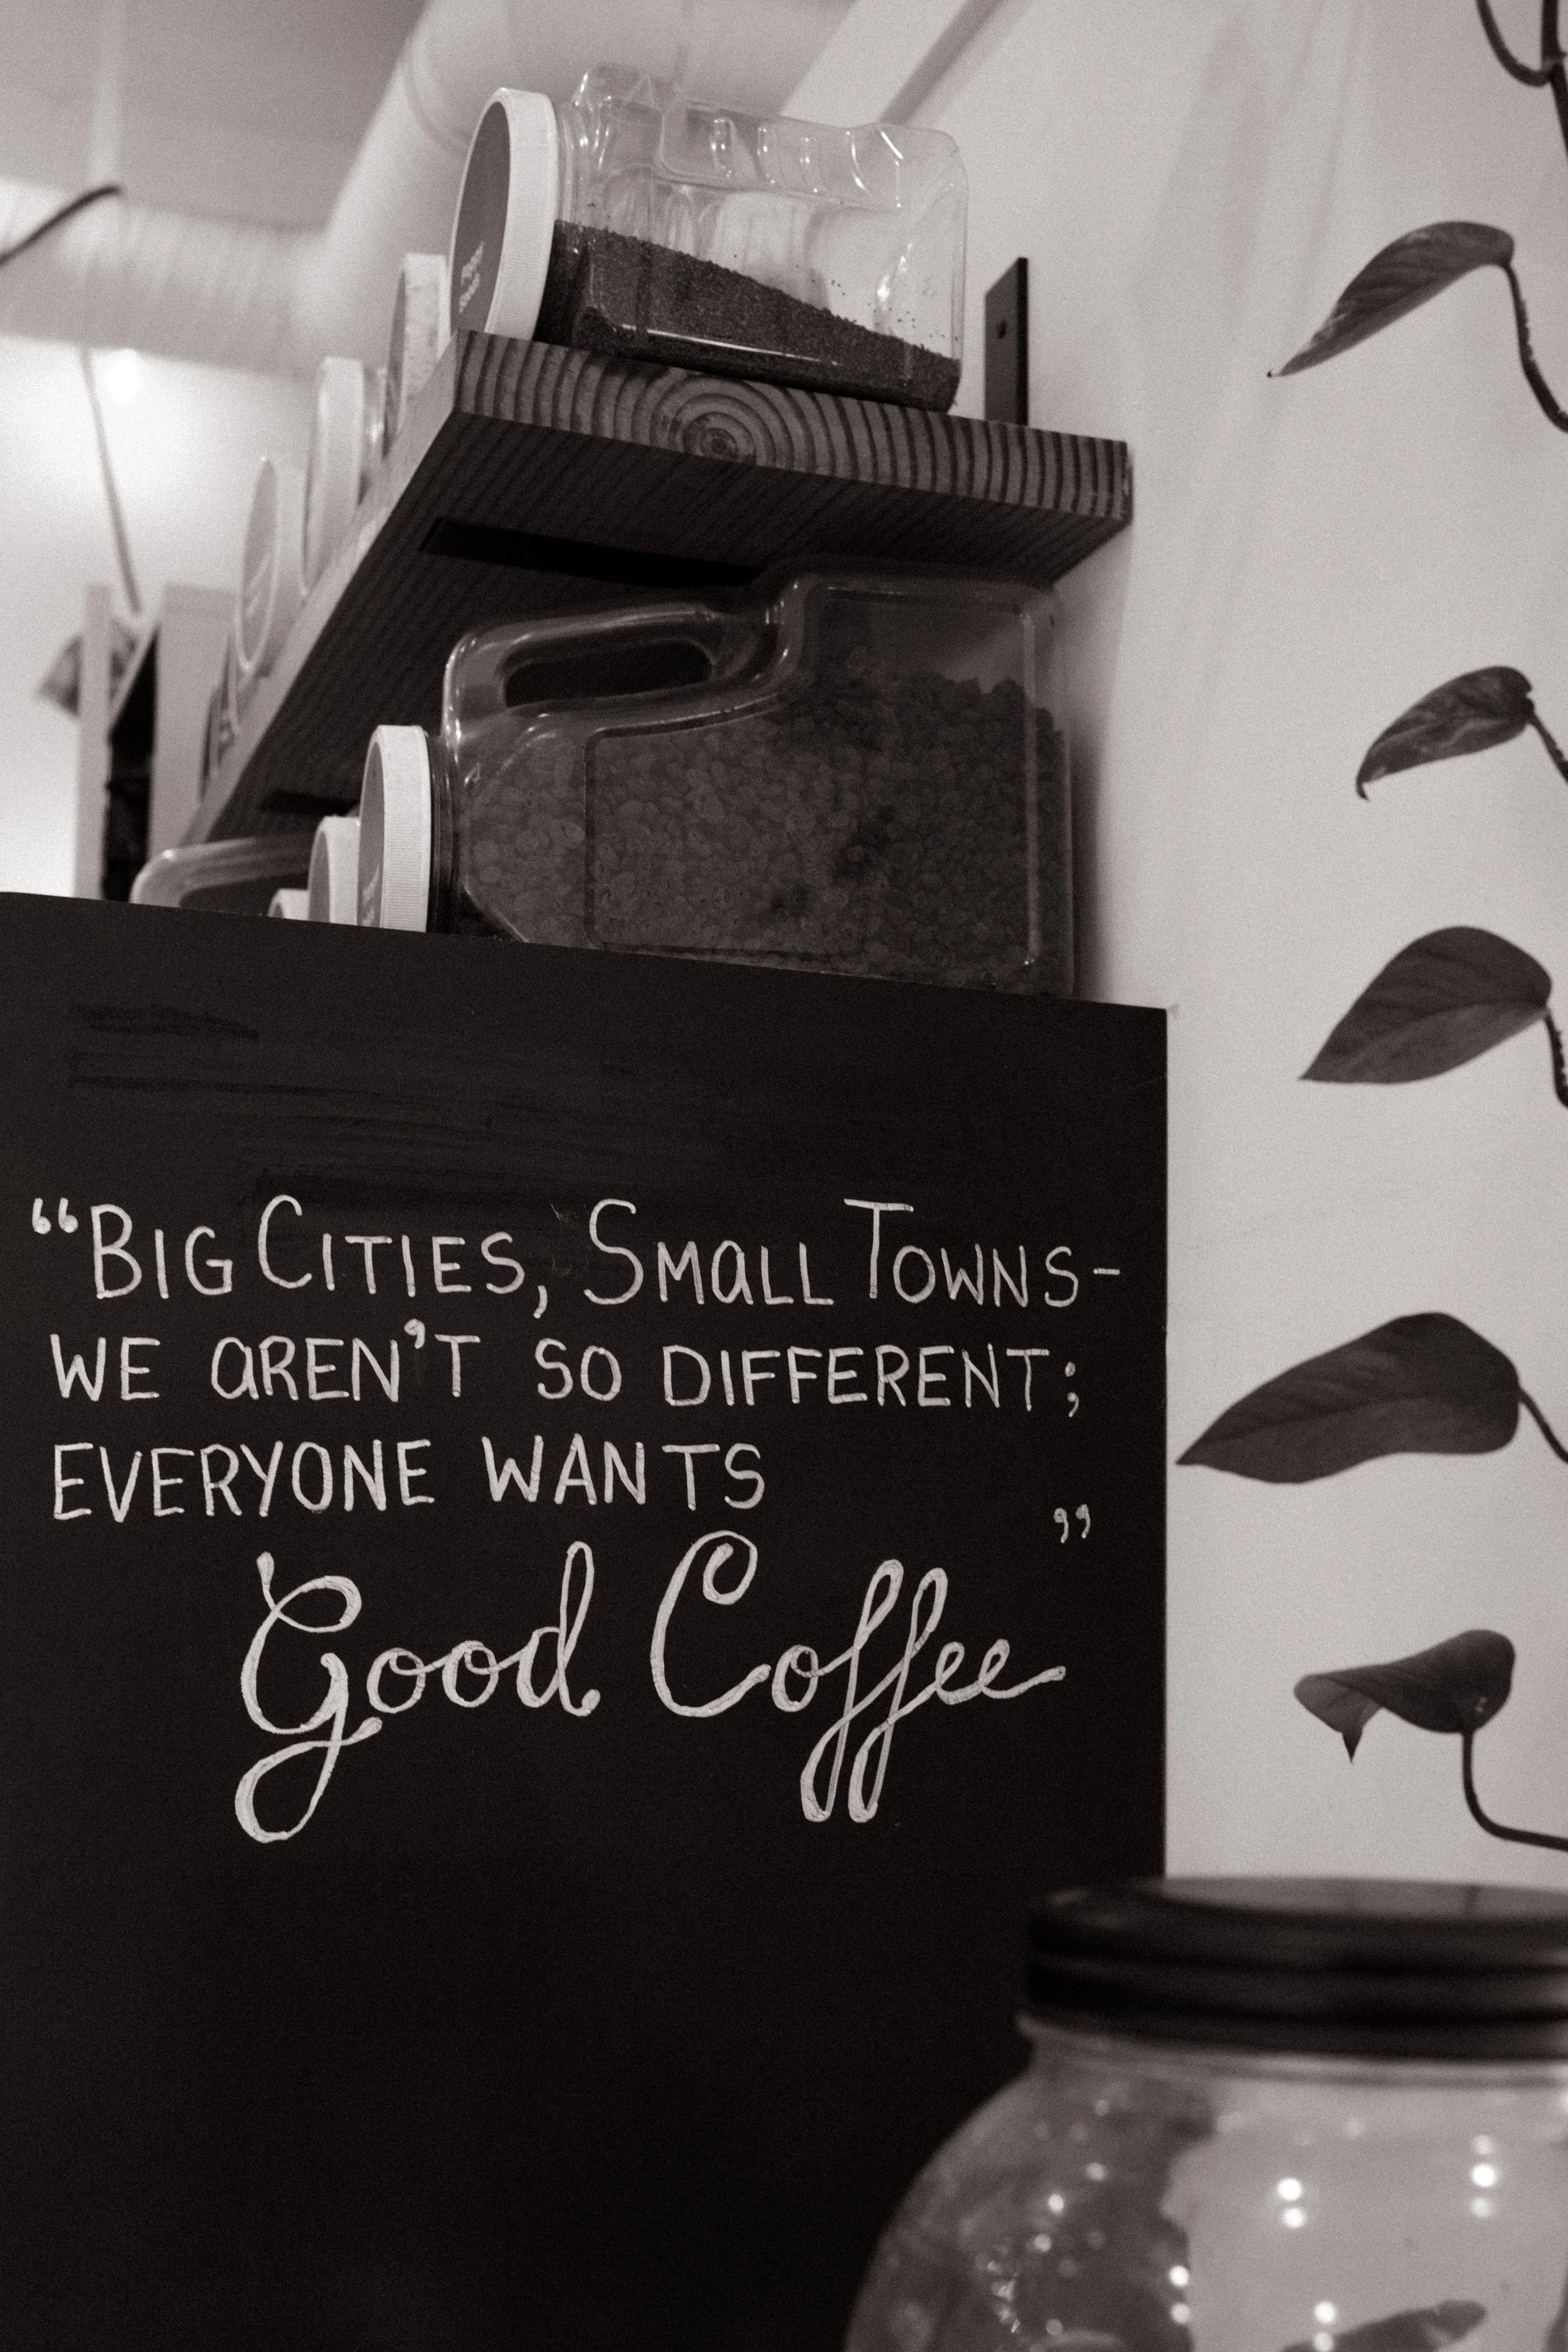 Poppy
Seeds
“BIG CITIES, SMALL TOWNS-
WE AREN'T SO DIFFERENT;
EVERYONE WANTS
Good Coffee”